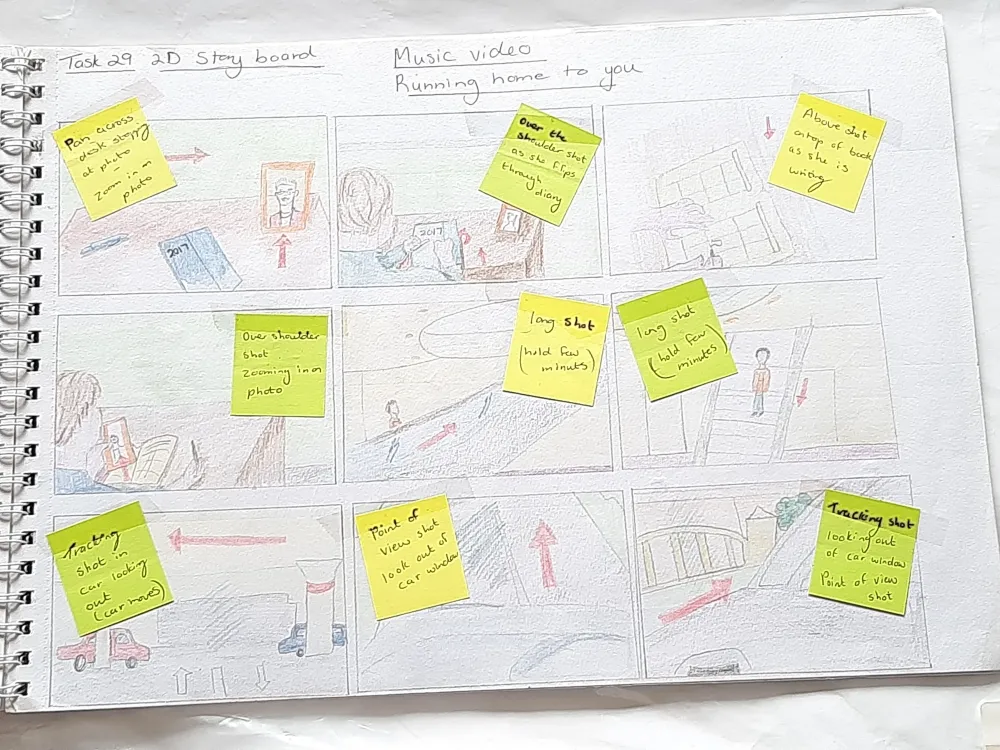 Task 29 2D Story board
Music video
Running home to you
Pan across
desk stopping
at photo
–
Zoom in on
photo
2017
Over the
shoulder shot
as she flips
through
diary
2017
Above shot
on top of book
as she is
writing
Over shoulder
shot
zooming in on
photo
long shot
(hold few
minutes)
long shot
(hold few
minutes)
Tracking
shot in
car looking
out
(car moves)
Point of
view shot
look out of
car window
Tracking shot
looking out
of car window
Point of view
shot